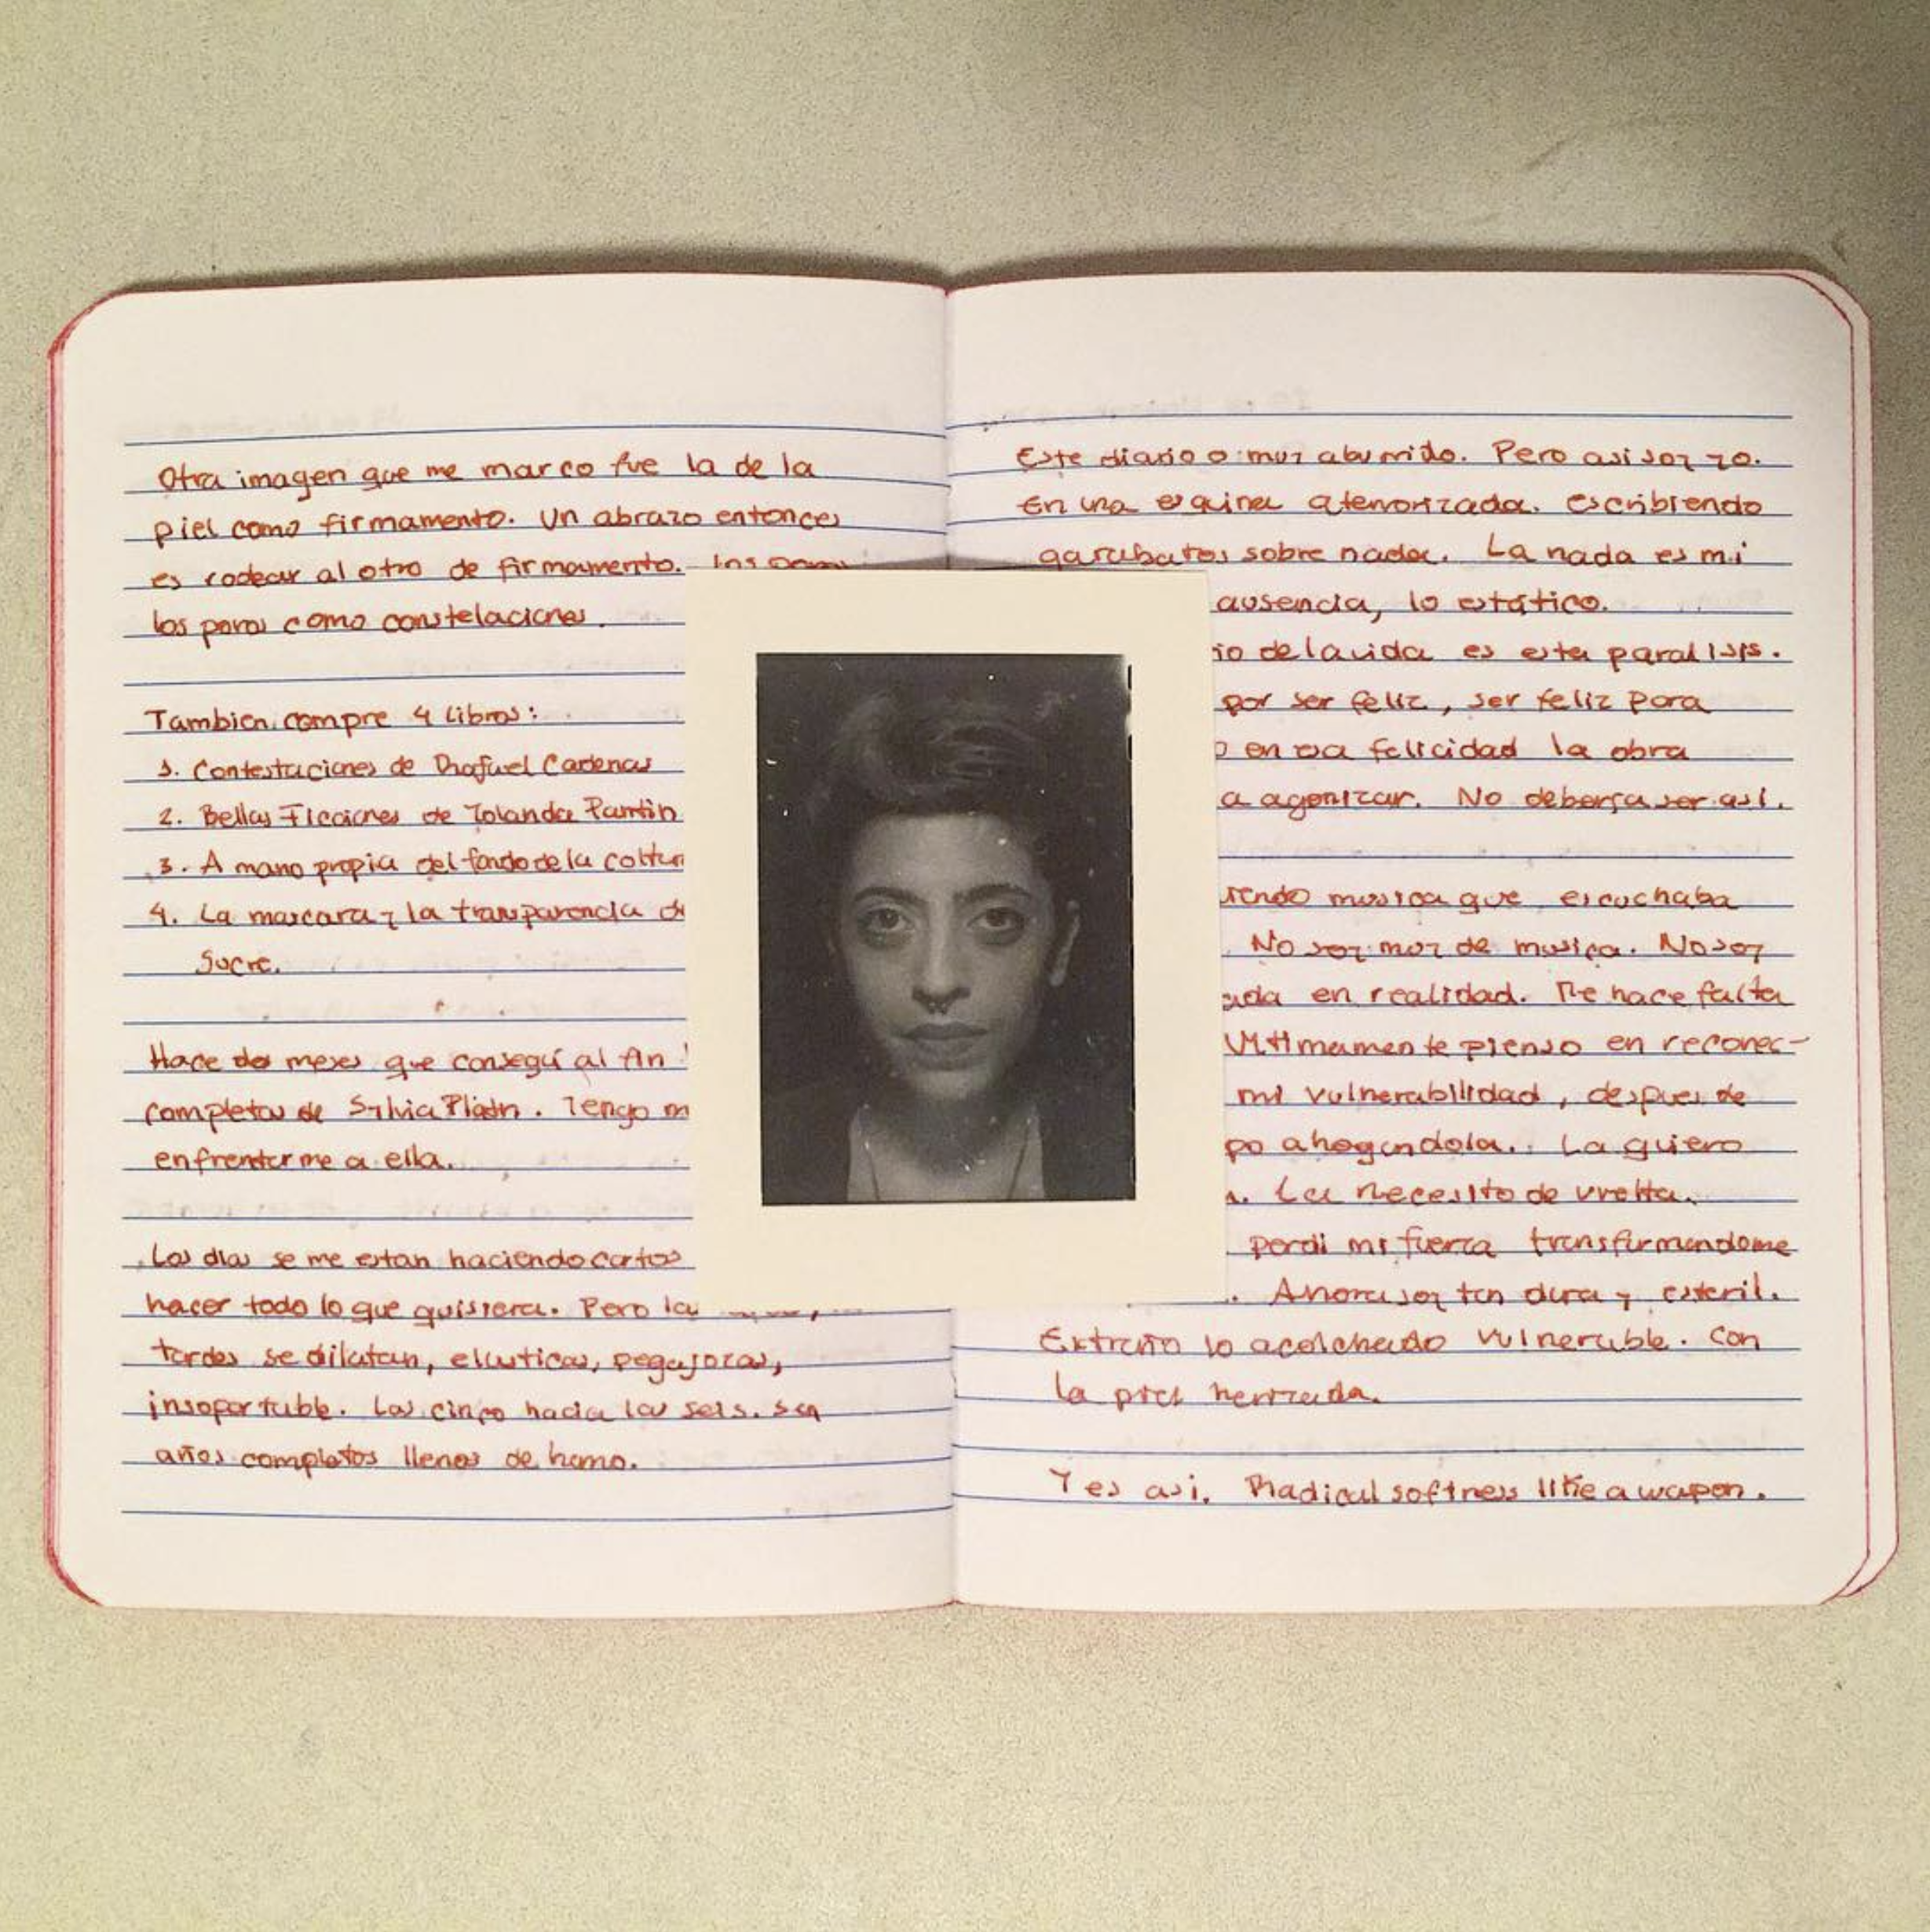 Otra imagen que me marco fue la de la
piel como firmamento. Un abrazo entonces
es rodear al otro de firmamento.
los poros como constelaciones.
Tambien compre 4 libros:
1. Contestaciones de Rafael Cadenas
2. Bellas Ficciones de Yolanda Pantin
3. A mano propia del fondo de la cultur
4. La mascara y la transparencia de
Sucre.
Hace dos meses que conseguí al fin
completas de Sylvia Plath. Tengo m
enfrentarme a ella.
Los dias se me estan haciendo cortos
hacer todo lo que quisiera. Pero las
tardes se dilatan, elasticas, pegajozas,
insoportable. Las cinco hacia las seis. Son
años completos llenos de humo.
Este diario muy aburrido. Pero asi soy yo.
En una esquina atemorizada. escribiendo
garabatos sobre nada. La nada es mi
ausencia, lo estático.
io de la vida es esta paralisis.
por ser feliz, ser feliz para
o en esa felicidad la obra
a agonizar. No deberia ser asi.
iendo musica que escuchaba
No soy muy de musica. No soy
ada en realidad. Me hace falta
Ultimamente pienso en reconec-
mi vulnerabilidad, despues de
po ahogandola. La quiero
a. La necesito de vuelta.
perdi mi fuerza transfurmandome
. Ahora soy tan dura y esteril.
Extraño lo acolchado vulnerable. Con
la piel herizada.
Y es asi. Radical softness like a wapon.